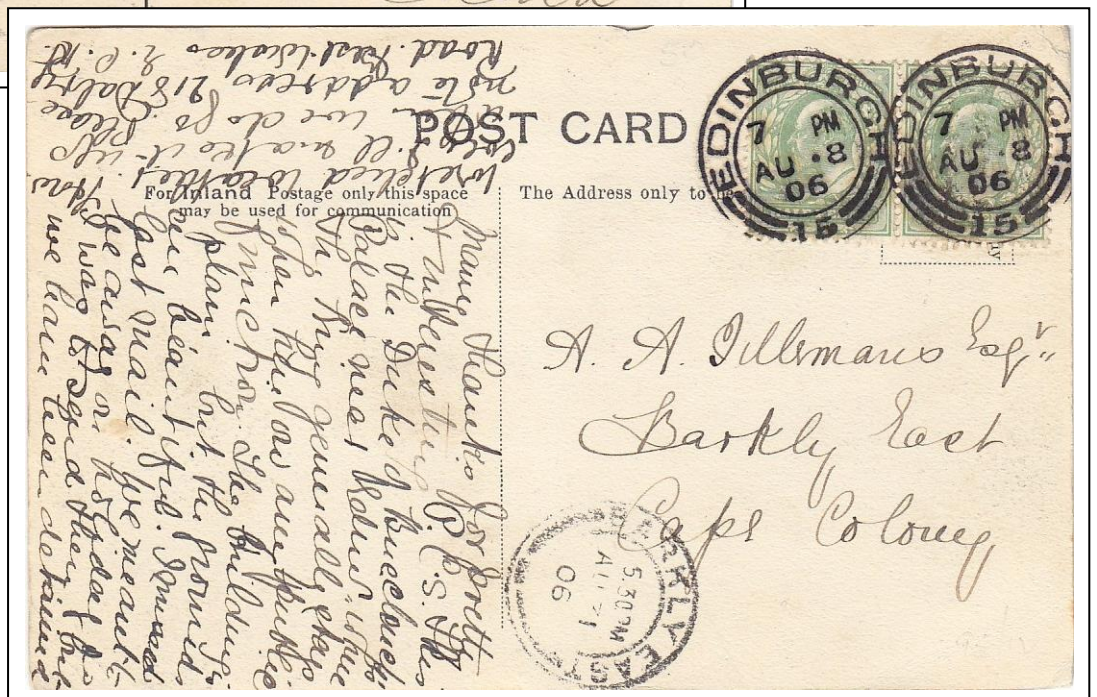 POST CARD
For Inland Postage only this space
may be used for communication
The Address only to be
EDINBURGH
7 PM
AU 8
06
15
EDINBURGH
7 PM
AU 8
06
15
A. A. Tillemans Esqr
Barkly East
Cape Colony
BARKLY EAST
5.30 PM
06
Many thanks for pretty
& interesting P.P.C.s. This
is the Duke of Buccleuch's
Palace near Edinr where
the King generally stays
when here on any public
function. The building is
plain but the grounds
are beautiful. I missed
last mail. We meant to
be away on holiday &
I was to send then but
we have been detained
wretched weather. How
we do so. Please
note address 218 Dalry
Road. Best wishes